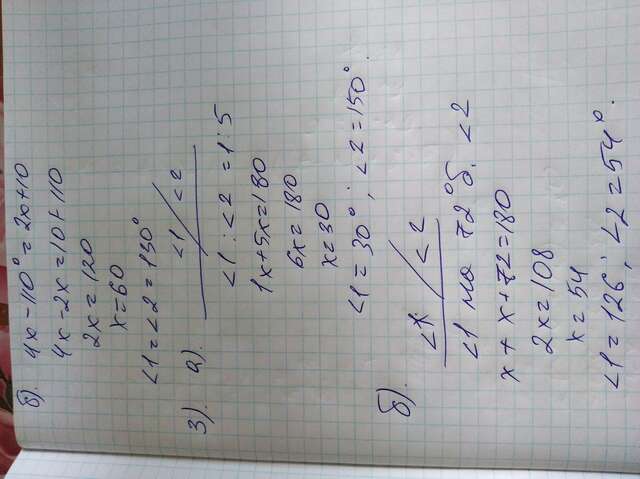 в). 4x-110°=2x+10
4x-2x=10+110
2x=120
x=60
<1=<2=130°
3). а).
<1 <2
<1:<2=1:5
1x+5x=180
6x=180
x=30
<1=30°; <2=150°.
б).
<1. <2
<1 на 72° б. <2
x+x+72=180
2x=108
x=54
<1=126; <2=54°.